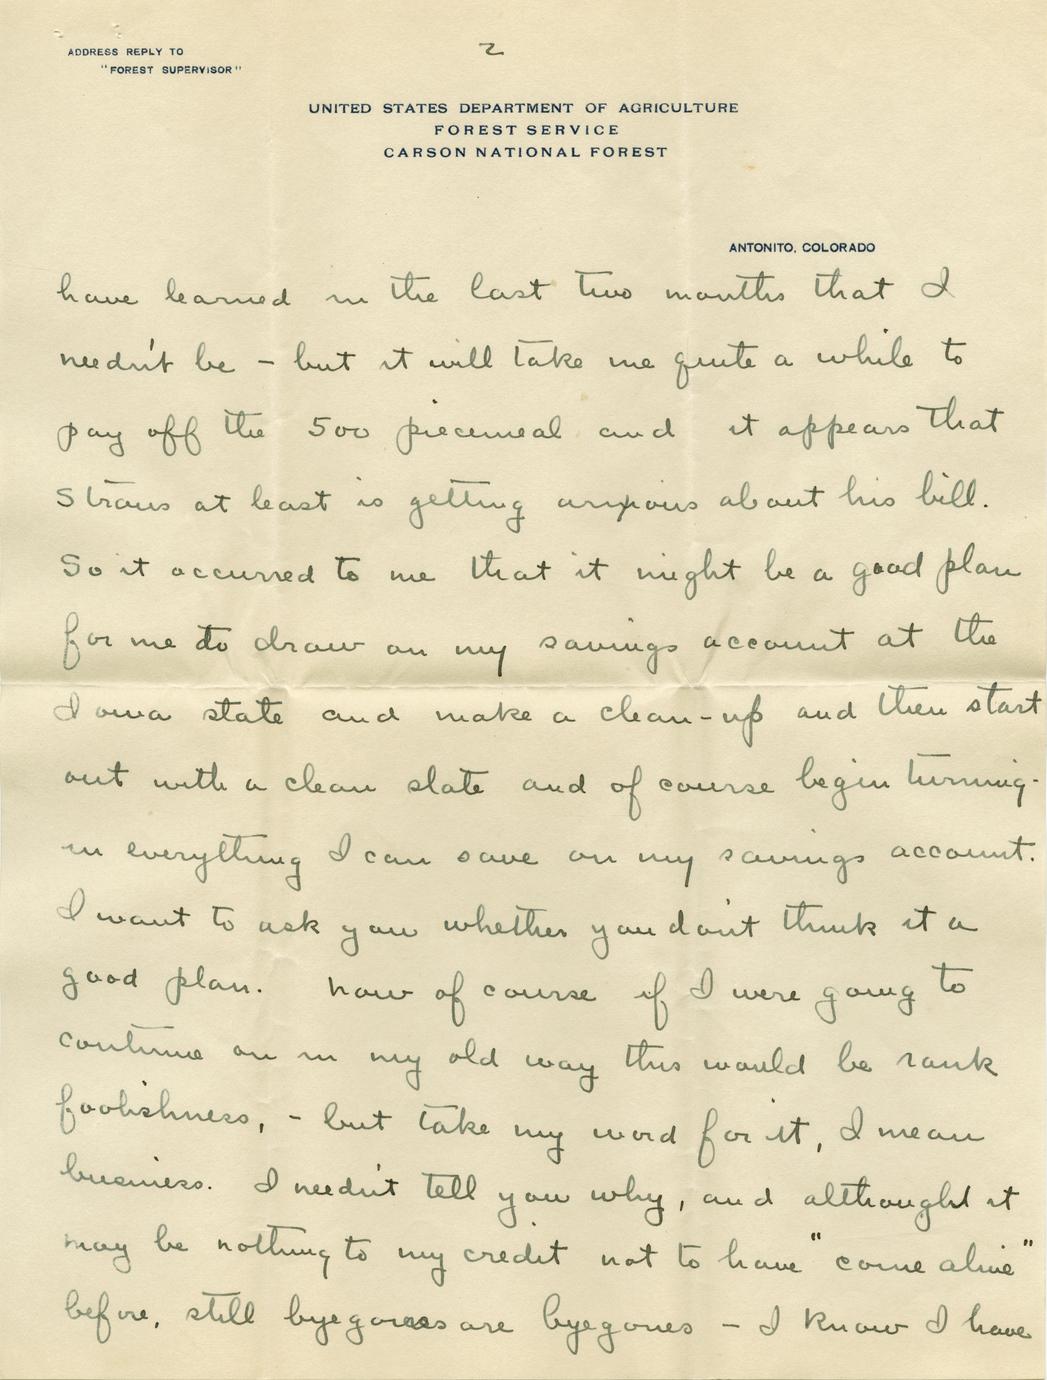 ADDRESS REPLY TO
"FOREST SUPERVISOR"
2
UNITED STATES DEPARTMENT OF AGRICULTURE
FOREST SERVICE
CARSON NATIONAL FOREST
ANTONITO, COLORADO
have learned in the last two months that I
needn't be – but it will take me quite a while to
pay off the 500 piecemeal and it appears that
Straus at least is getting anxious about his bill.
So it occurred to me that it might be a good plan
for me to draw on my savings account at the
Iowa state and make a clean-up and then start
out with a clean slate and of course begin turning-
in everything I can save on my savings account.
I want to ask you whether you don't think it a
good plan. Now of course if I were going to
continue on in my old way this would be rank
foolishness, – but take my word for it, I mean
business. I needn't tell you why, and althought it
may be nothing to my credit not to have "come alive"
before, still byegones are byegones – I know I have